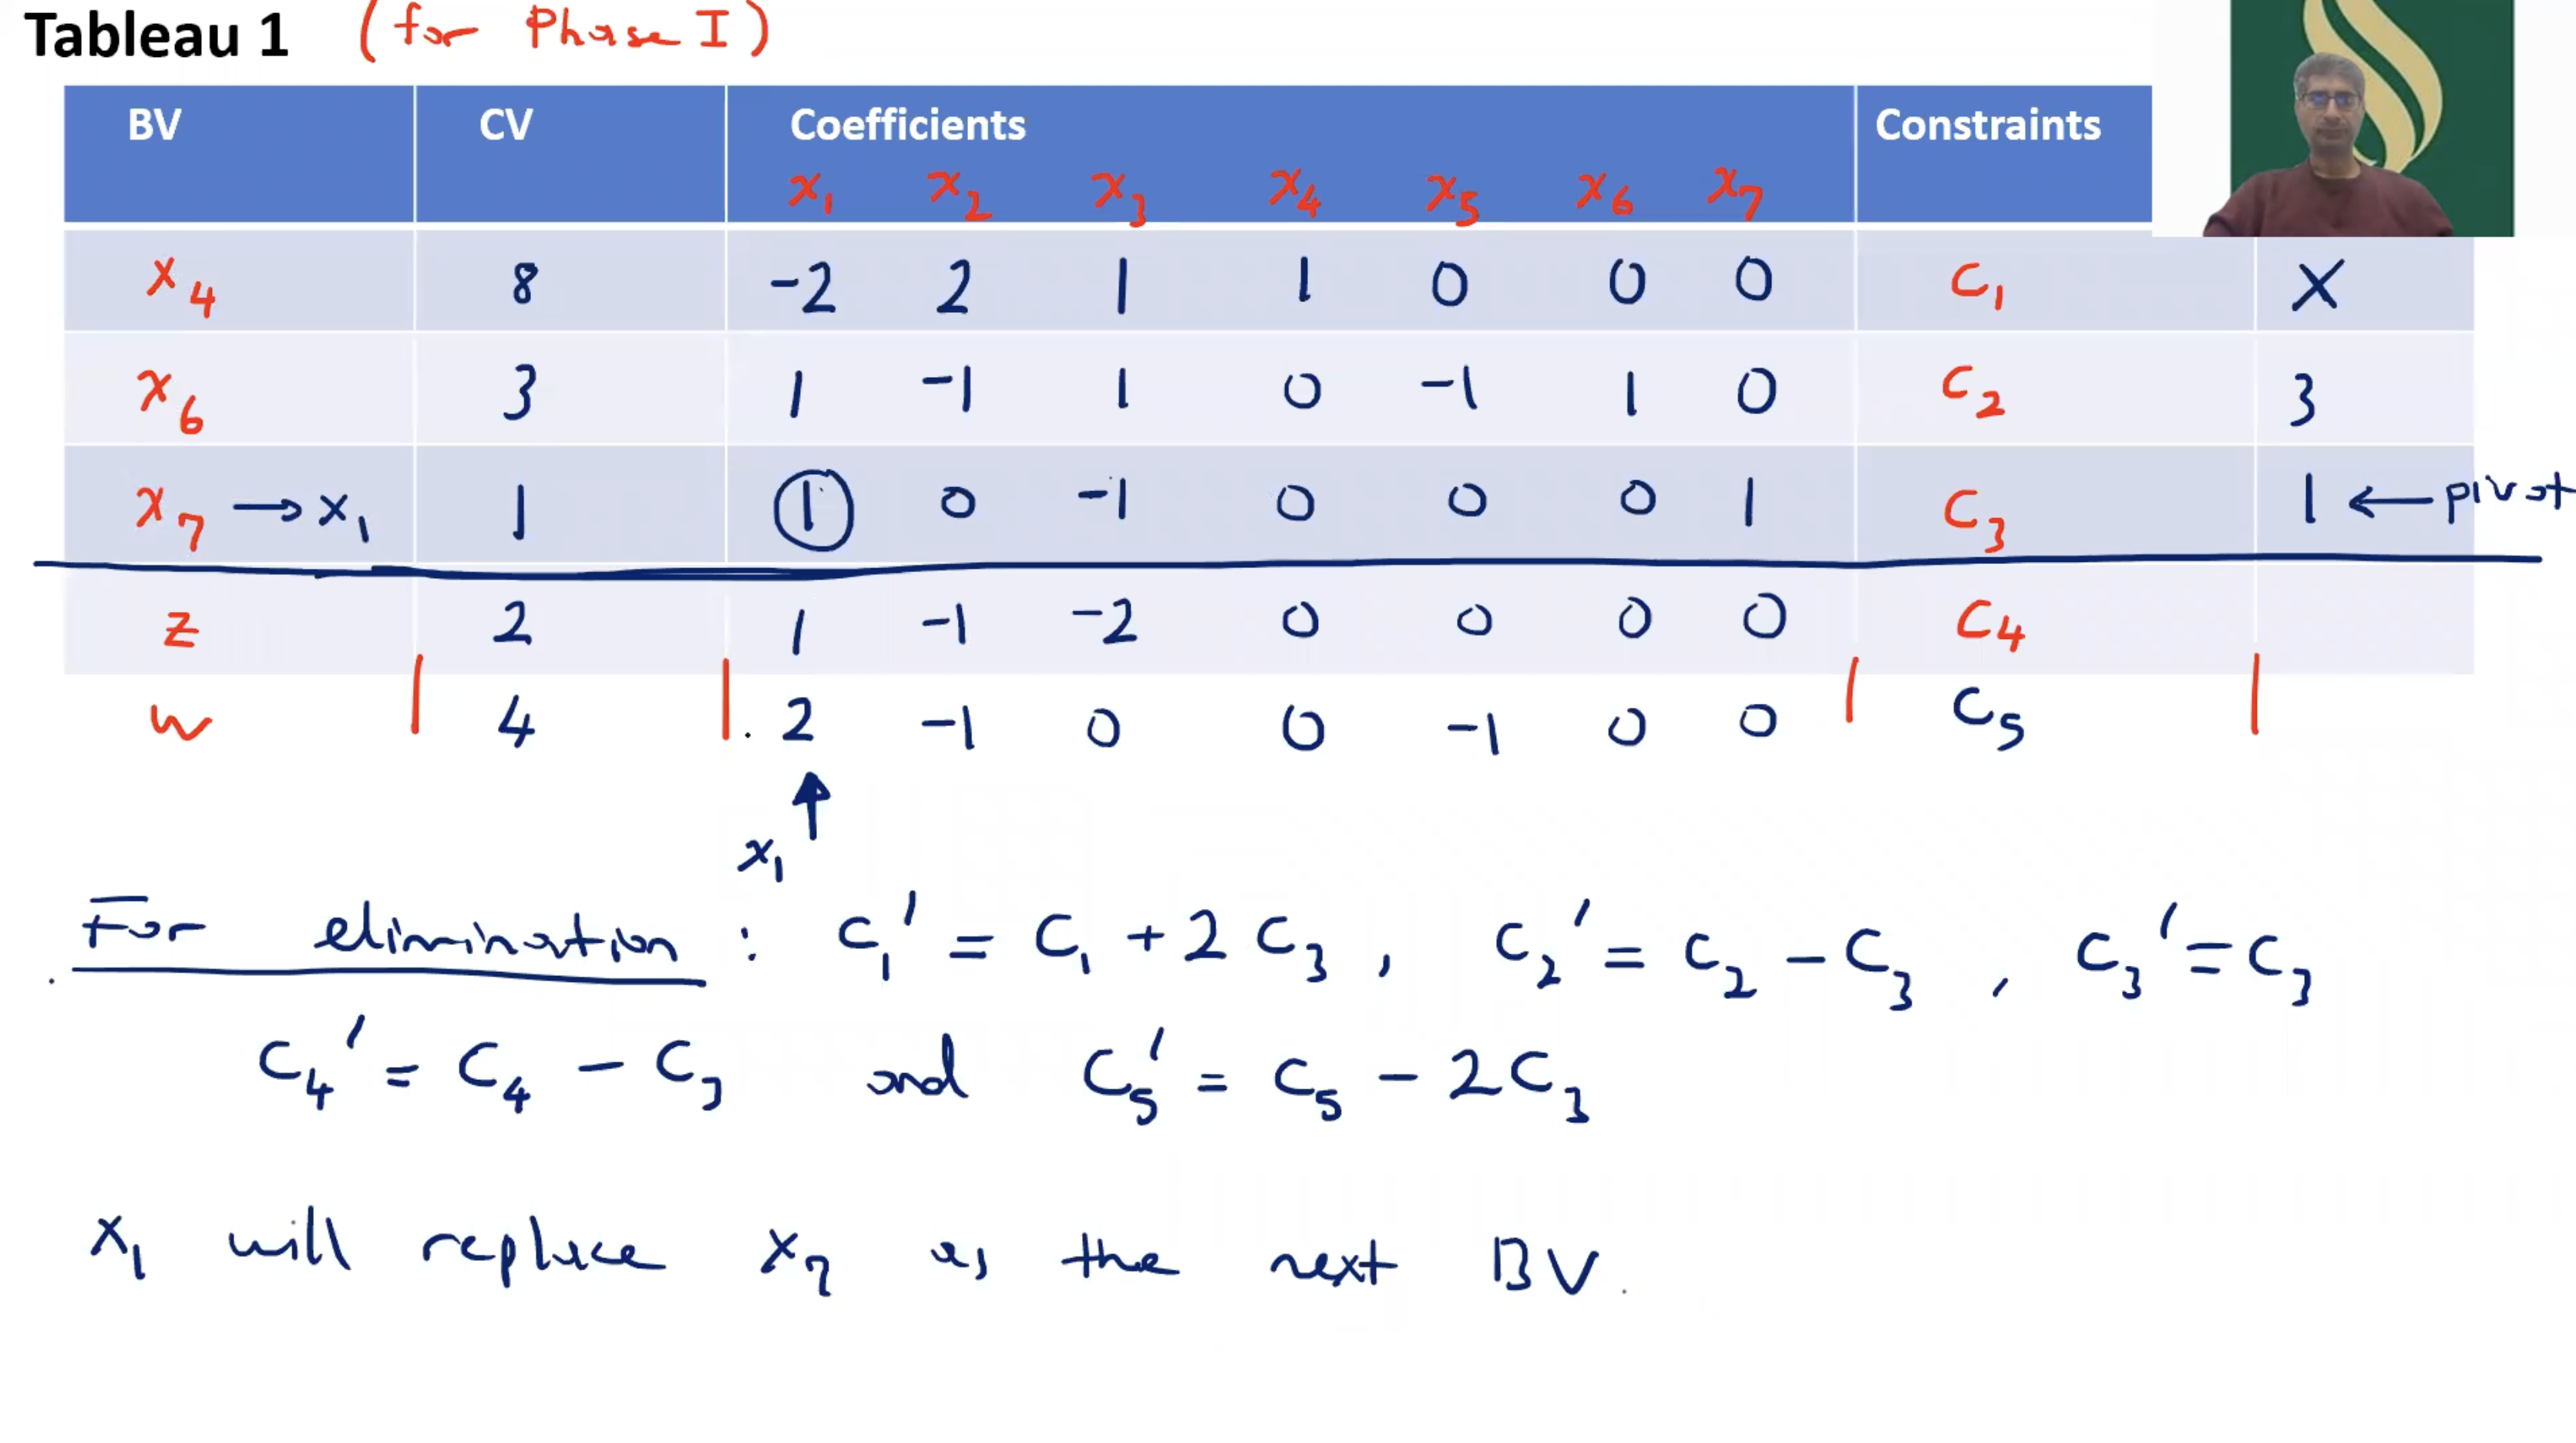 Tableau 1 (for Phase I)
BV CV Coefficients Constraints
x₁ x₂ x₃ x₄ x₅ x₆ x₇
x₄ 8 -2 2 1 1 0 0 0 C₁ X
x₆ 3 1 -1 1 0 -1 1 0 C₂ 3
x₇ → x₁ 1 1 0 -1 0 0 0 1 C₃ 1 ← pivot
z 2 1 -1 -2 0 0 0 0 C₄
w 4 2 -1 0 0 -1 0 0 C₅
x₁
For elimination : C₁' = C₁ + 2 C₃ , C₂' = C₂ - C₃ , C₃' = C₃
C₄' = C₄ - C₃ and C₅' = C₅ - 2C₃
x₁ will replace x₇ as the next BV.